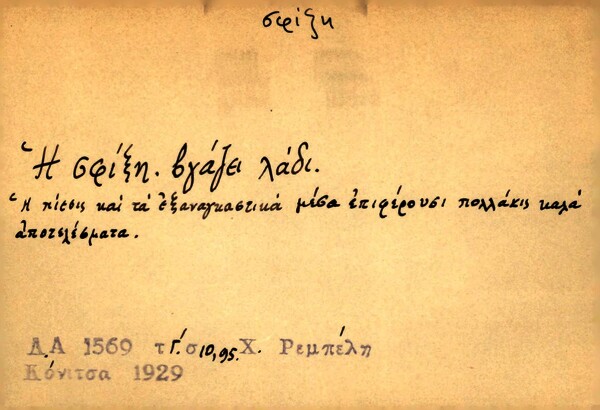 σφίξη
Ἡ σφίξη. βγάζει λάδι.
Ἡ πίεσις καὶ τὰ ἐξαναγκαστικά μέσα ἐπιφέρουσι πολλάκις καλά
ἀποτελέσματα.
Λ.Α 1569 τ Γ΄. σ 10, 95. Χ. Ρεμπέλη
Κόνιτσα 1929